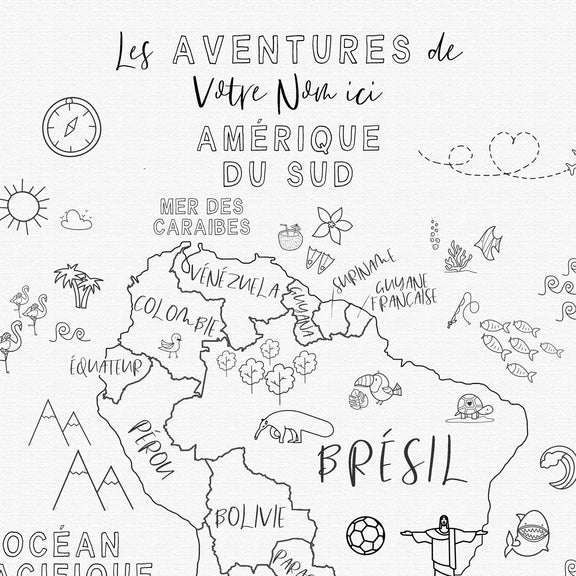 Les AVENTURES de
Votre Nom ici
AMÉRIQUE
DU SUD
MER DES
CARAIBES
VÉNÉZUELA
SURINAME
GUYANE
FRANÇAISE
GUYANA
COLOMBIE
ÉQUATEUR
PÉROU
BRÉSIL
BOLIVIE
OCÉAN
PACIFIQUE
PARAG